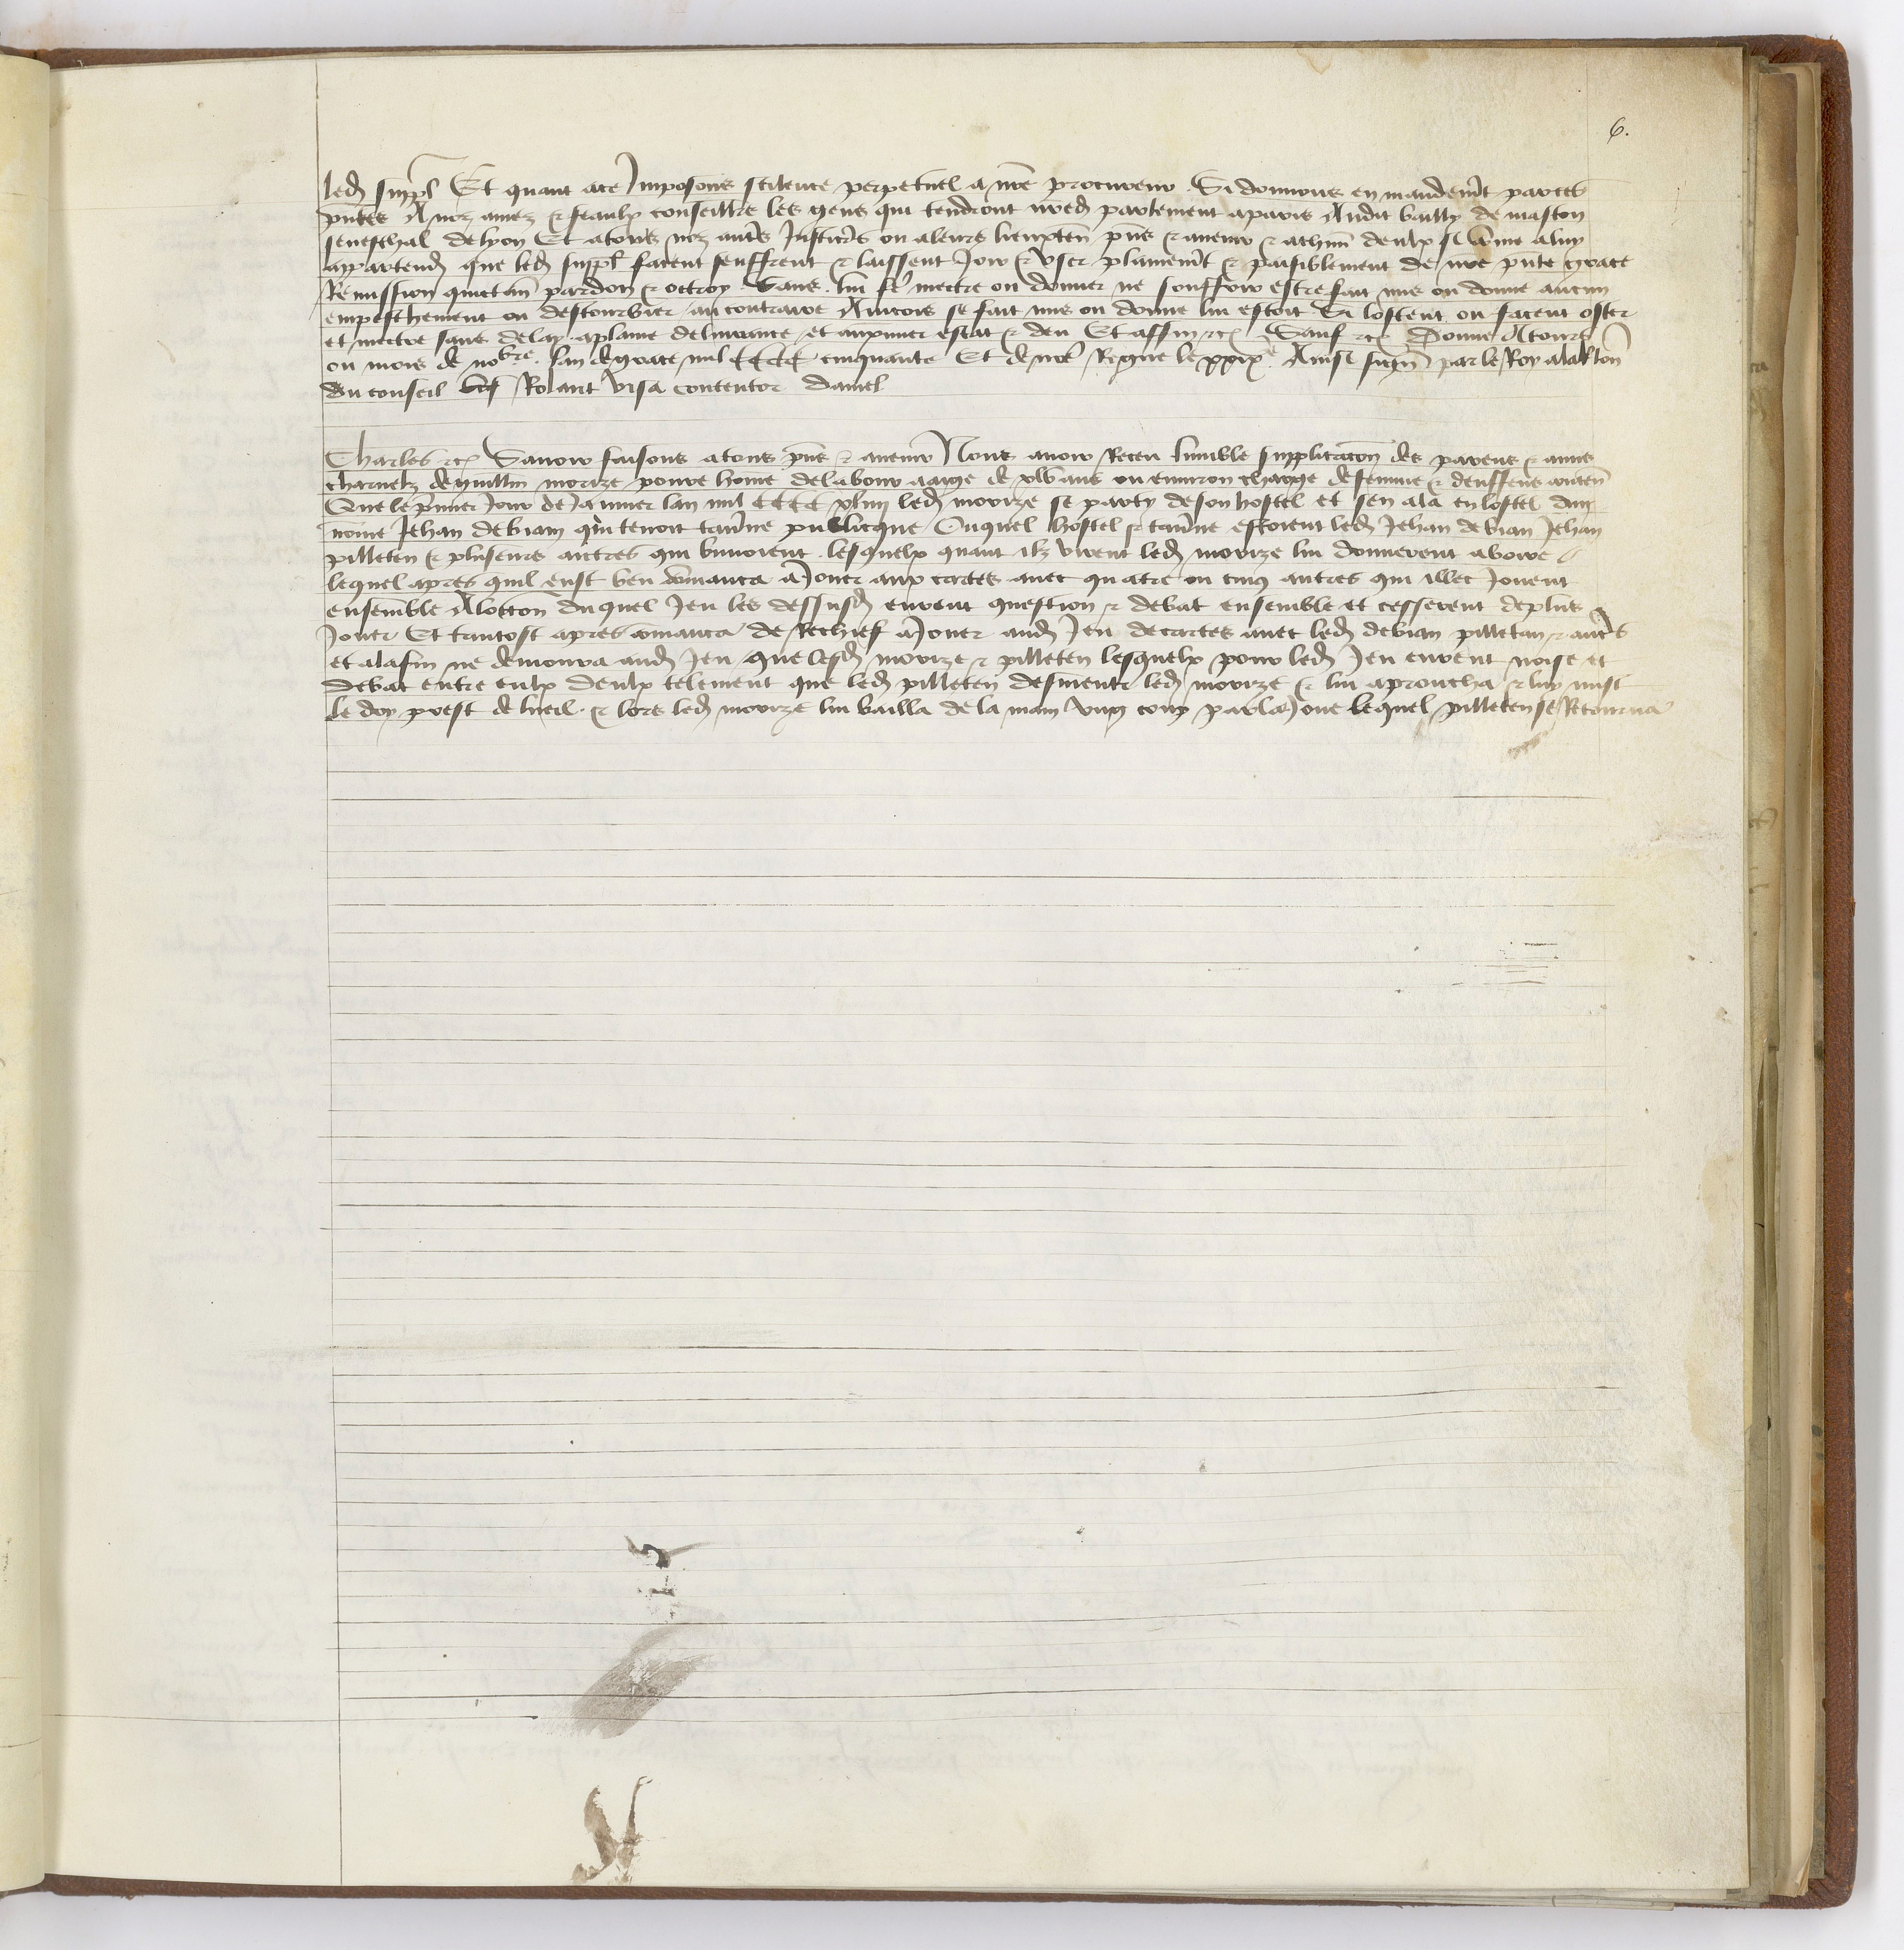 6.
led suppl Et quant ace Imposons scilence perpetuel a nre procureur. Si donnons en mandemt par ces
pntes A noz amez & feaulx conseillrs les gens qui tendront nred parlement a paris Audit bailly de mascon
seneschal de lyon Et a tous noz autrs Justicrs ou a leurs lieuxten pns & auenir & a chun deulx si come a luy
appartendra que led suppl facent seuffrent & laissent Joir & vser plainemt & paisiblement de nre pnte grace
Remission quictan pardon & octroy Sans lui fe mectre ou donner ne souffrir estre fait mis ou donne aucun
empeschement ou destourbier au contraire Aincois se fait mis ou donne lui estoit Si lostent ou facent oster
et mectre sans delay a plaine deliurance et au pmier estat & deu Et affin &c Sauf &c Donne A tours
ou mois de nobre. lan de grace mil CCCC cinquante Et de nre Regne le xxixe Ainsi sign par le Roy a la Rlon
du conseil Rolant Visa contentor Daniel
Charles &c Sauoir faisons a tous pns & auenir Nous auoir Receu lumble supplicacon des parens & amis
charnelz de guillm morize poure home de labour aage de xl ans ou enuiron charge de femme & denffens conten
Que le pmier Jour de Januier lan mil CCCC xlviii led morize se party de son hostel et sen ala en lostel dun
nome Jehan debiam qui tenoit tauerne publicque Ouquel hostel & tauerne estoient led Jehan debian Jehan
pilleten & pluseurs autres qui buuoient. lesquelx quant ilz virent led morize lui donnerent a boire
lequel apres quil eust beu comanca a Jouer aux cartes auec quatre ou cinq autres qui illec Jouent
ensemble A locccon duquel Jeu les dessusd eurent question & debat ensemble et cesserent de plus
Jouer Et tantost apres comanca de Rechief a Jouer aud Jeu de cartes auec led debian pilletan & autrs
et a la fin ne demoura aud Jeu que lesd morize & pilleten lesquelx pour led Jeu eurent noise et
debat entre eulx deulx telement que led pilleten desmenti led morize & lui aproucha & luy mist
le doy prest de lueil. & lors led morize lui bailla de la main vng coup par la Joue lequel pilleten se Retourna